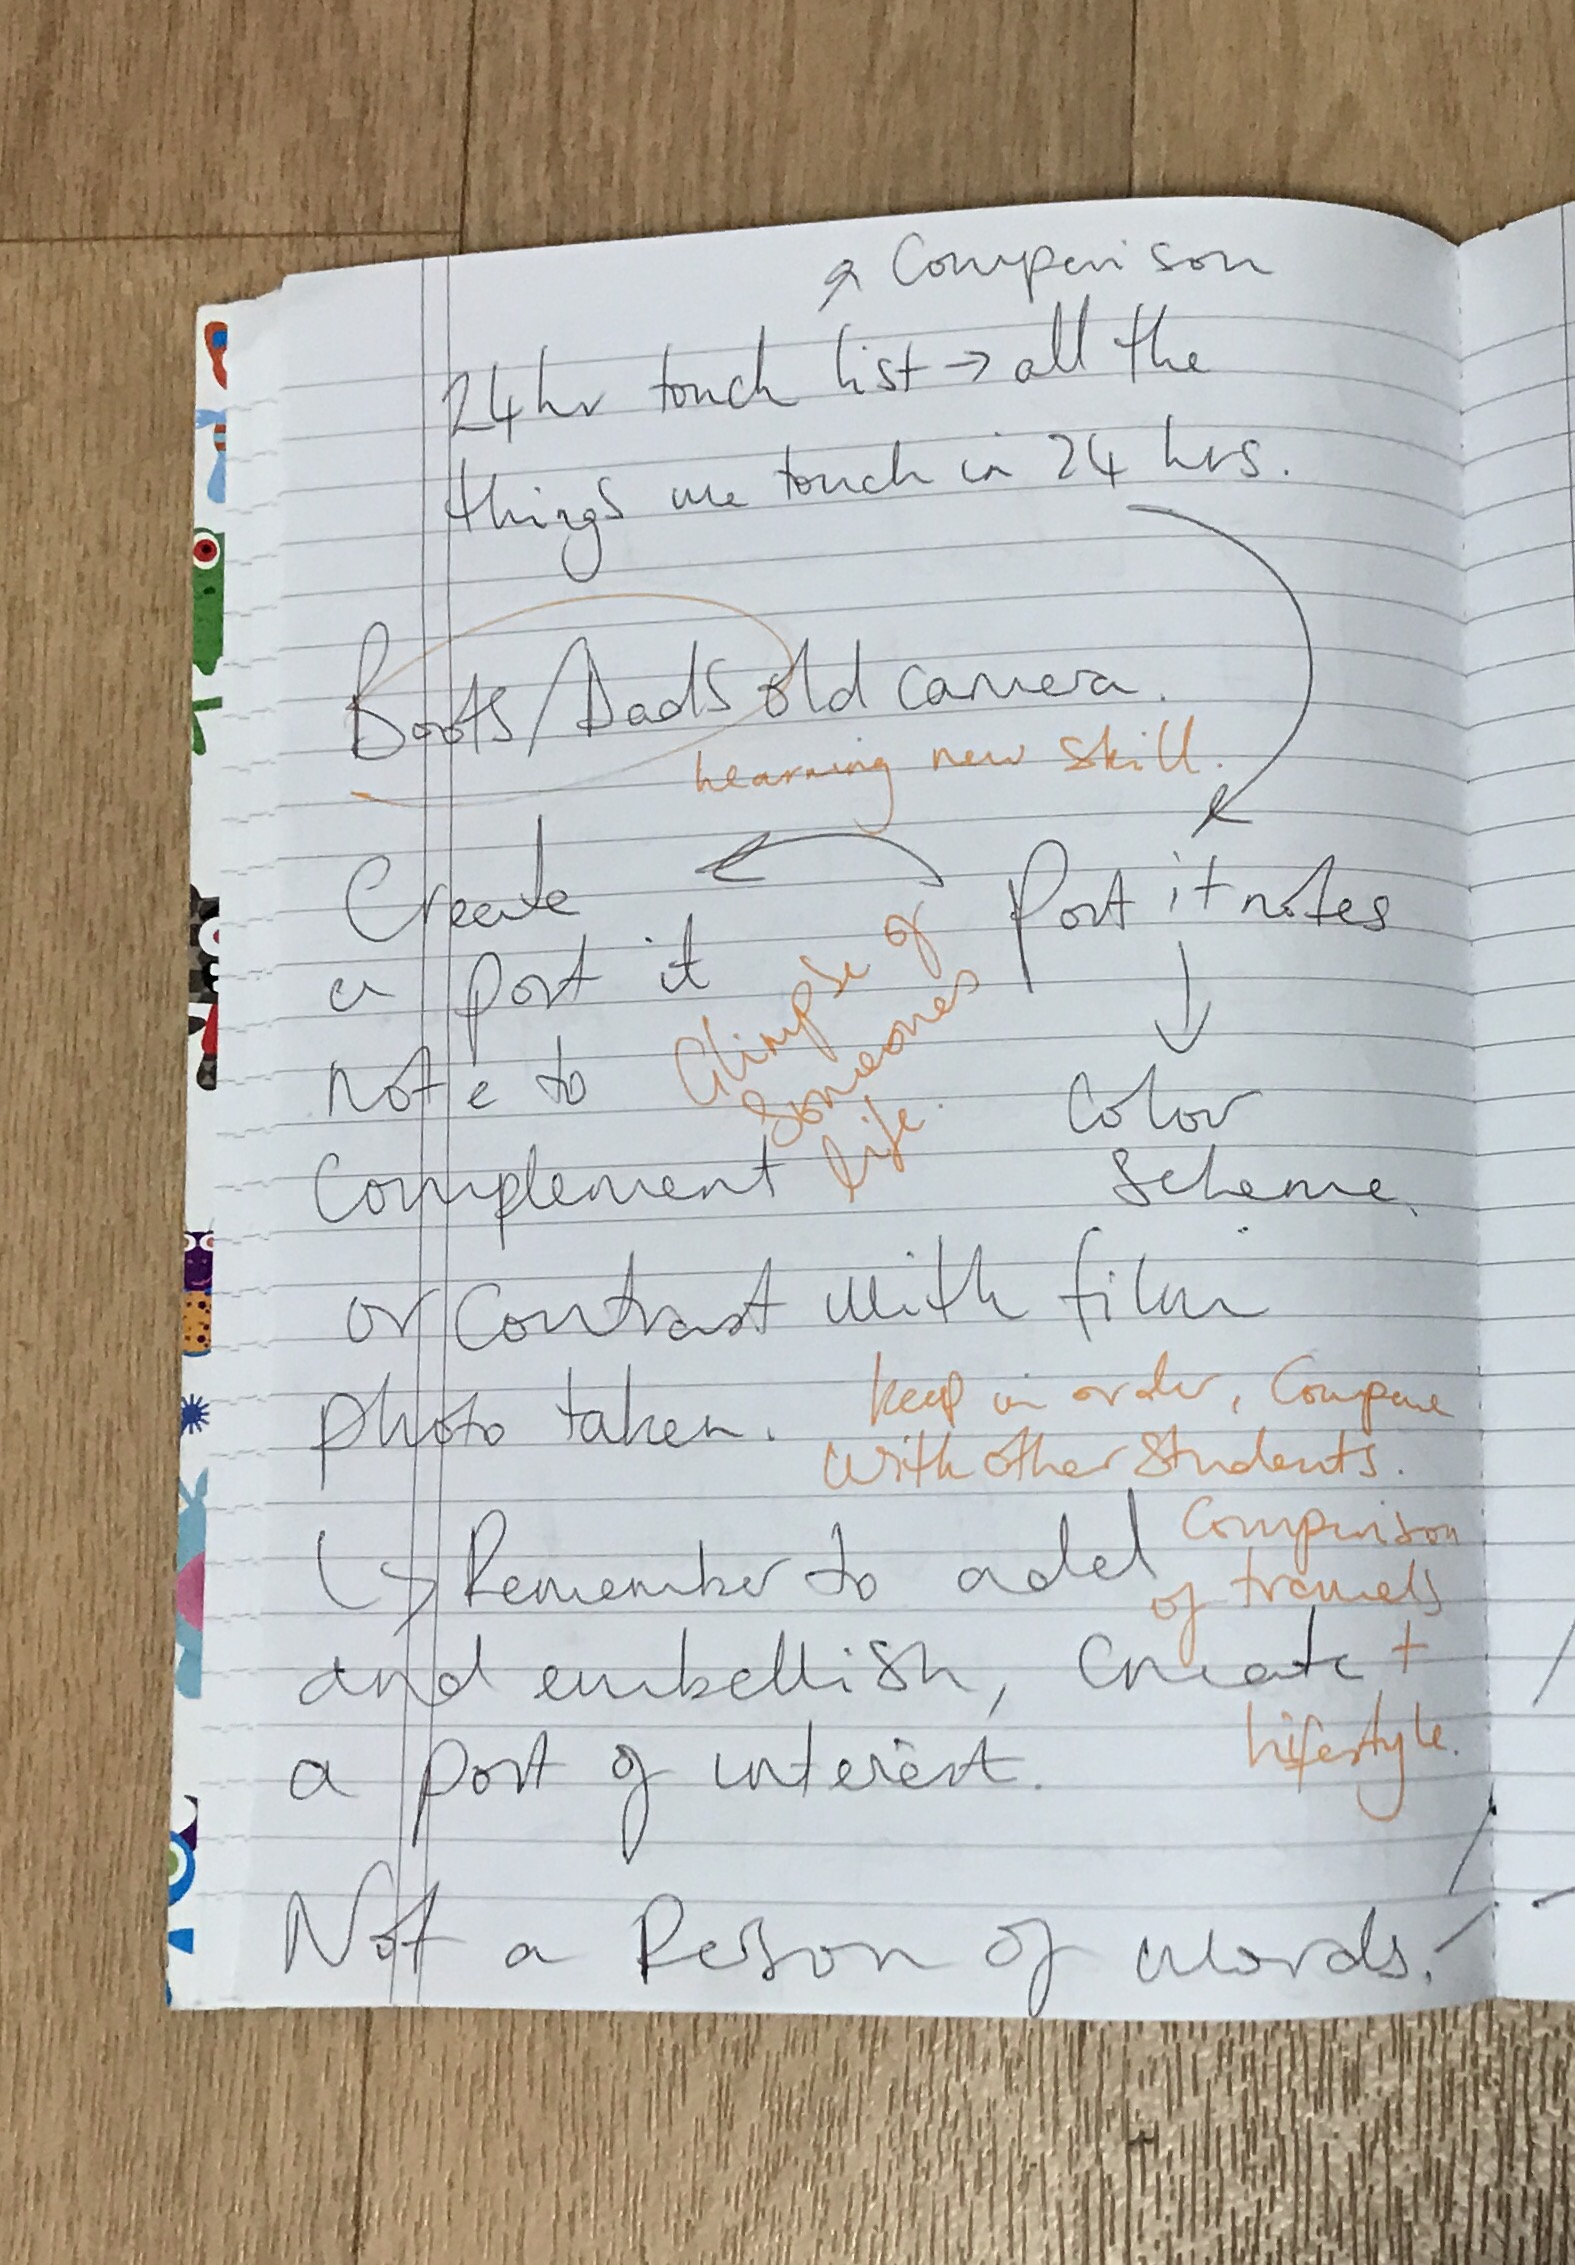 ↗ Comparison
24hr touch list → all the
things we touch in 24 hrs.
Boots/Dads old camera.
Learning new skill.
Create
a post it
note to
Complement
Post it notes
↓
Color
Scheme.
Glimpse of
Someones
life.
or Contrast with film
photo taken.
keep in order, Compare
with other students.
↳ Remember to add
and embellish, Create
a post of interest.
Comparison
of travels
+
lifestyle.
Not a Person of words!